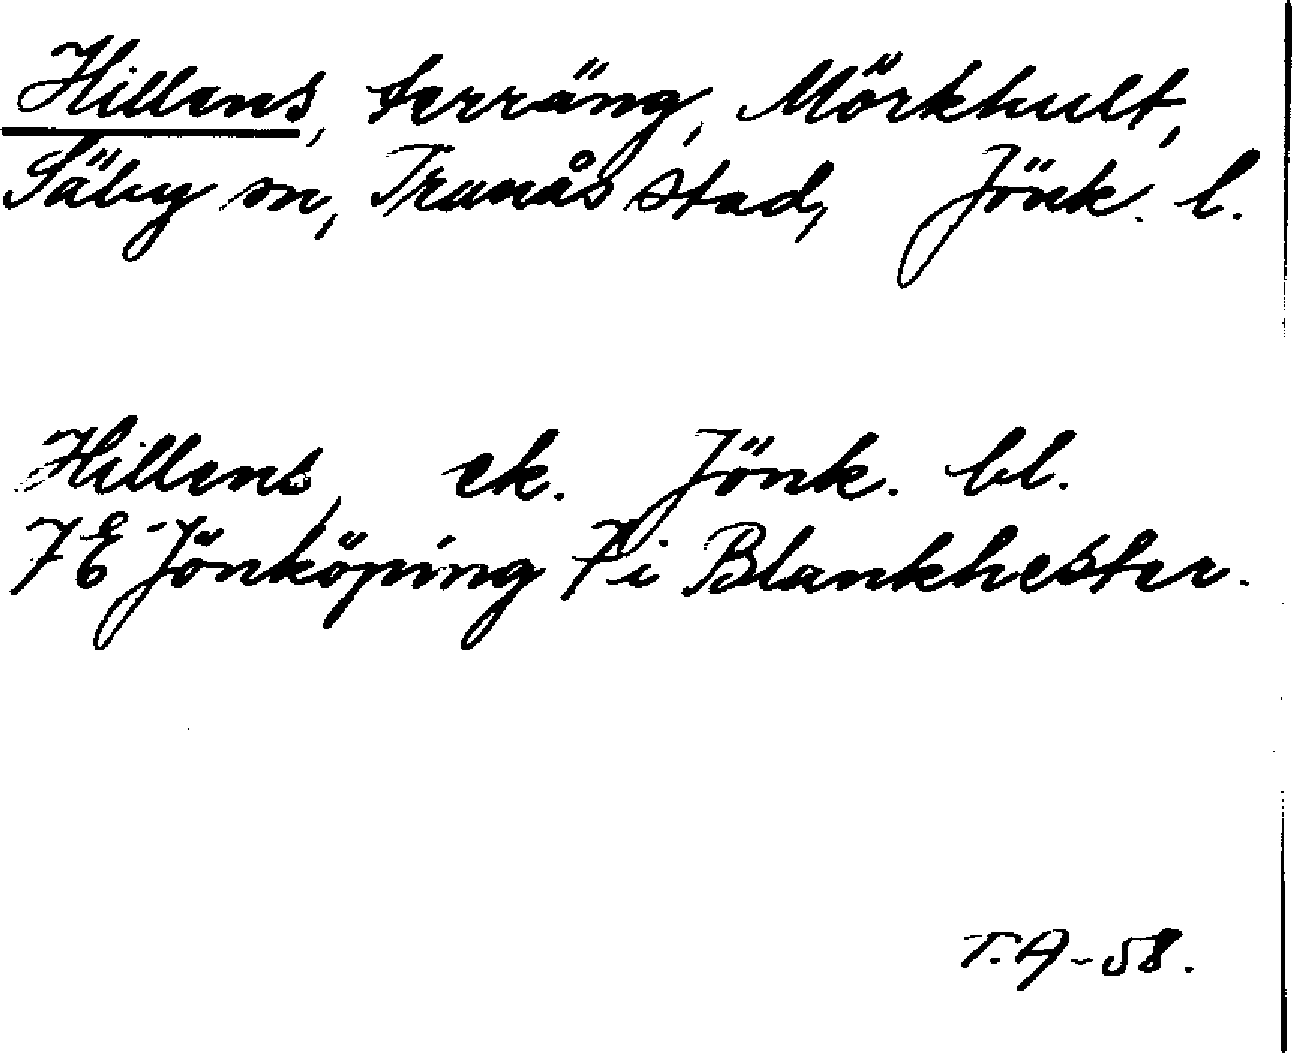 Hillens, terräng, Mörkhult,
Säby sn, Tranås stad, Jönk. l.
Hillens, ek. Jönk. bl.
7E Jönköping 7i Blankhester.
T.A-58.